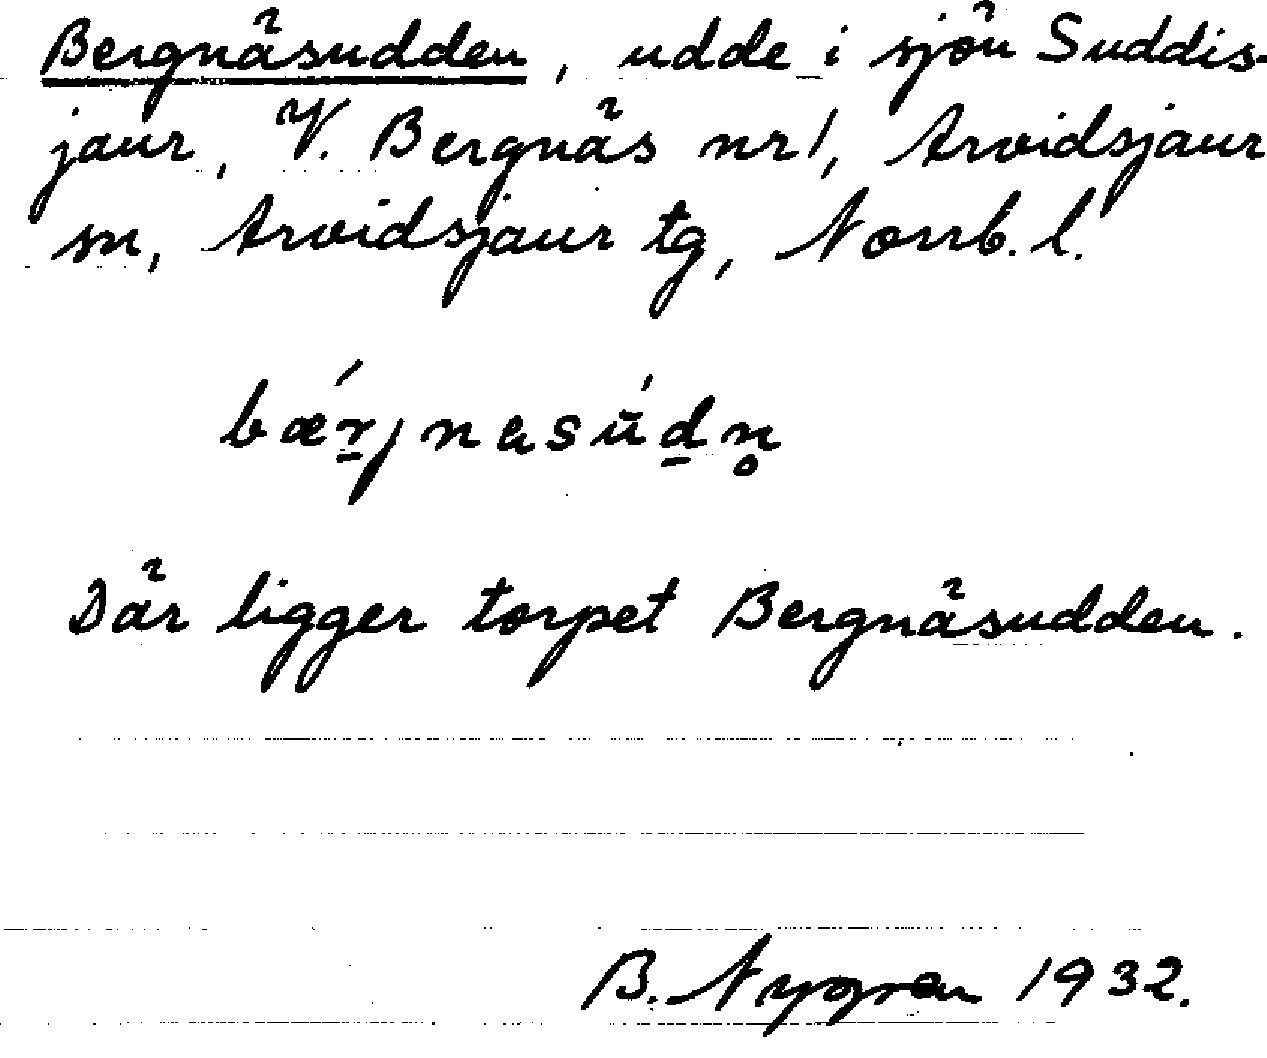 Bergnäsudden, udde i sjön Suddis-
jaur, V. Bergnäs nr 1, Arvidsjaur
sn, Arvidsjaur tg, Norrb. l.
bǽr̠jnasū́d̠n̥
Där ligger torpet Bergnäsudden.
B. Nygren 1932.